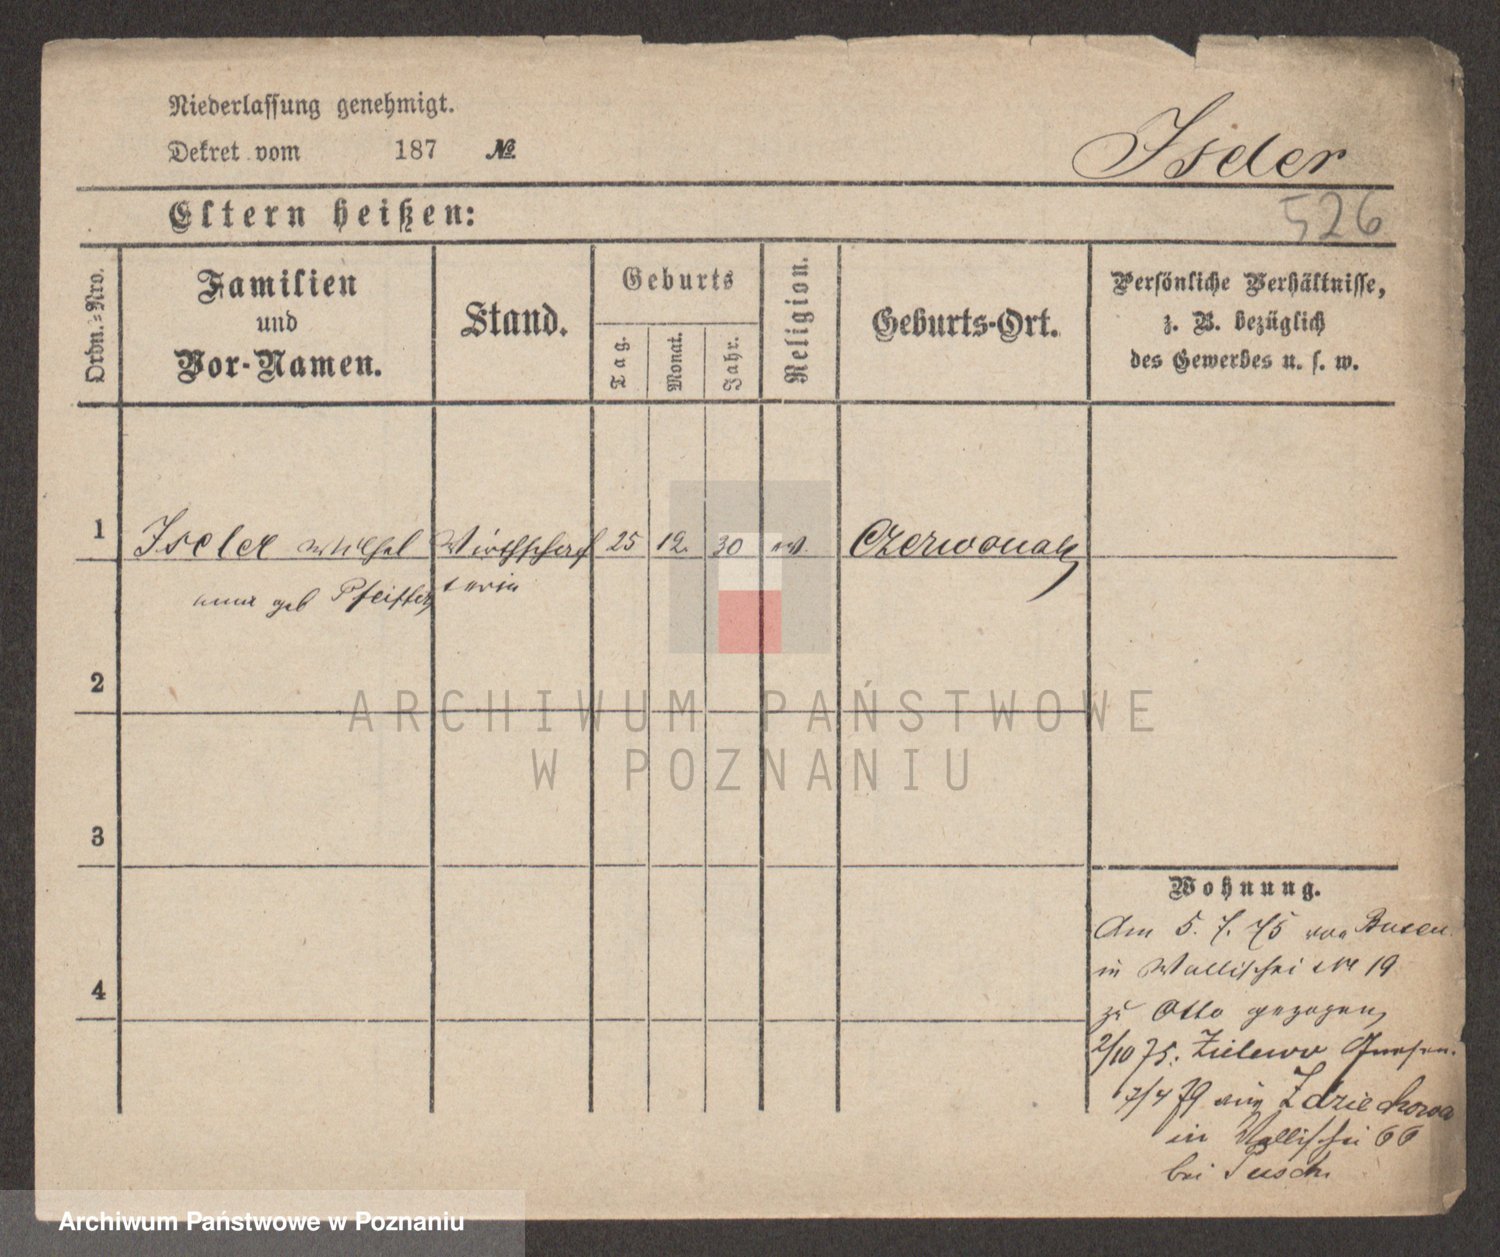 Niederlassung genehmigt.
Dekret vom 187 №
Iseler
Eltern heißen:
526
Ordn.-Nro.
Familien
und
Vor-Namen.
Stand.
Geburts
Tag.
Monat.
Jahr.
Religion.
Geburts-Ort.
Persönliche Verhältnisse,
z. B. bezüglich
des Gewerbes u. s. w.
1 Iseler Wilhel Wirthschaf 25 12. 30 ev. Czerwonak
mine geb Pfeiffer terin
2
ARCHIWUM PAŃSTWOWE
W POZNANIU
3
Wohnung.
Am 5. 7. 75 von
in Wallischei No 19
4
zu Otto gezogen,
2/10 75. Zielewo Gnesen.
7/4 79 aus Zdziechowa
in Wallischei 66
bei Pusch
Archiwum Państwowe w Poznaniu